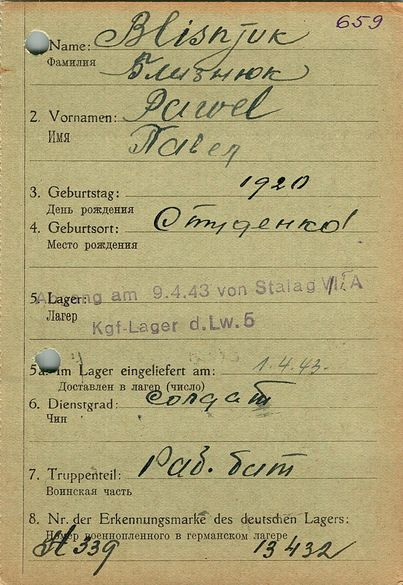 659
1. Name: Blisnjuk
Фамилия Близнюк
2. Vornamen: Pawel
Имя Павел
3. Geburtstag: 1920
День рождения
4. Geburtsort: Студенка
Место рождения
5. Lager: am 9.4.43 von Stalag A
Лагер Kgf-Lager d.Lw. 5
5a. im Lager eingeliefert am: 1.4.43.
Доставлен в лагер (число)
6. Dienstgrad: солдат
Чин
7. Truppenteil: Раб. бат
Воинская часть
8. Nr. der Erkennungsmarke des deutschen Lagers:
Номер военнопленного в германском лагере
339 13432